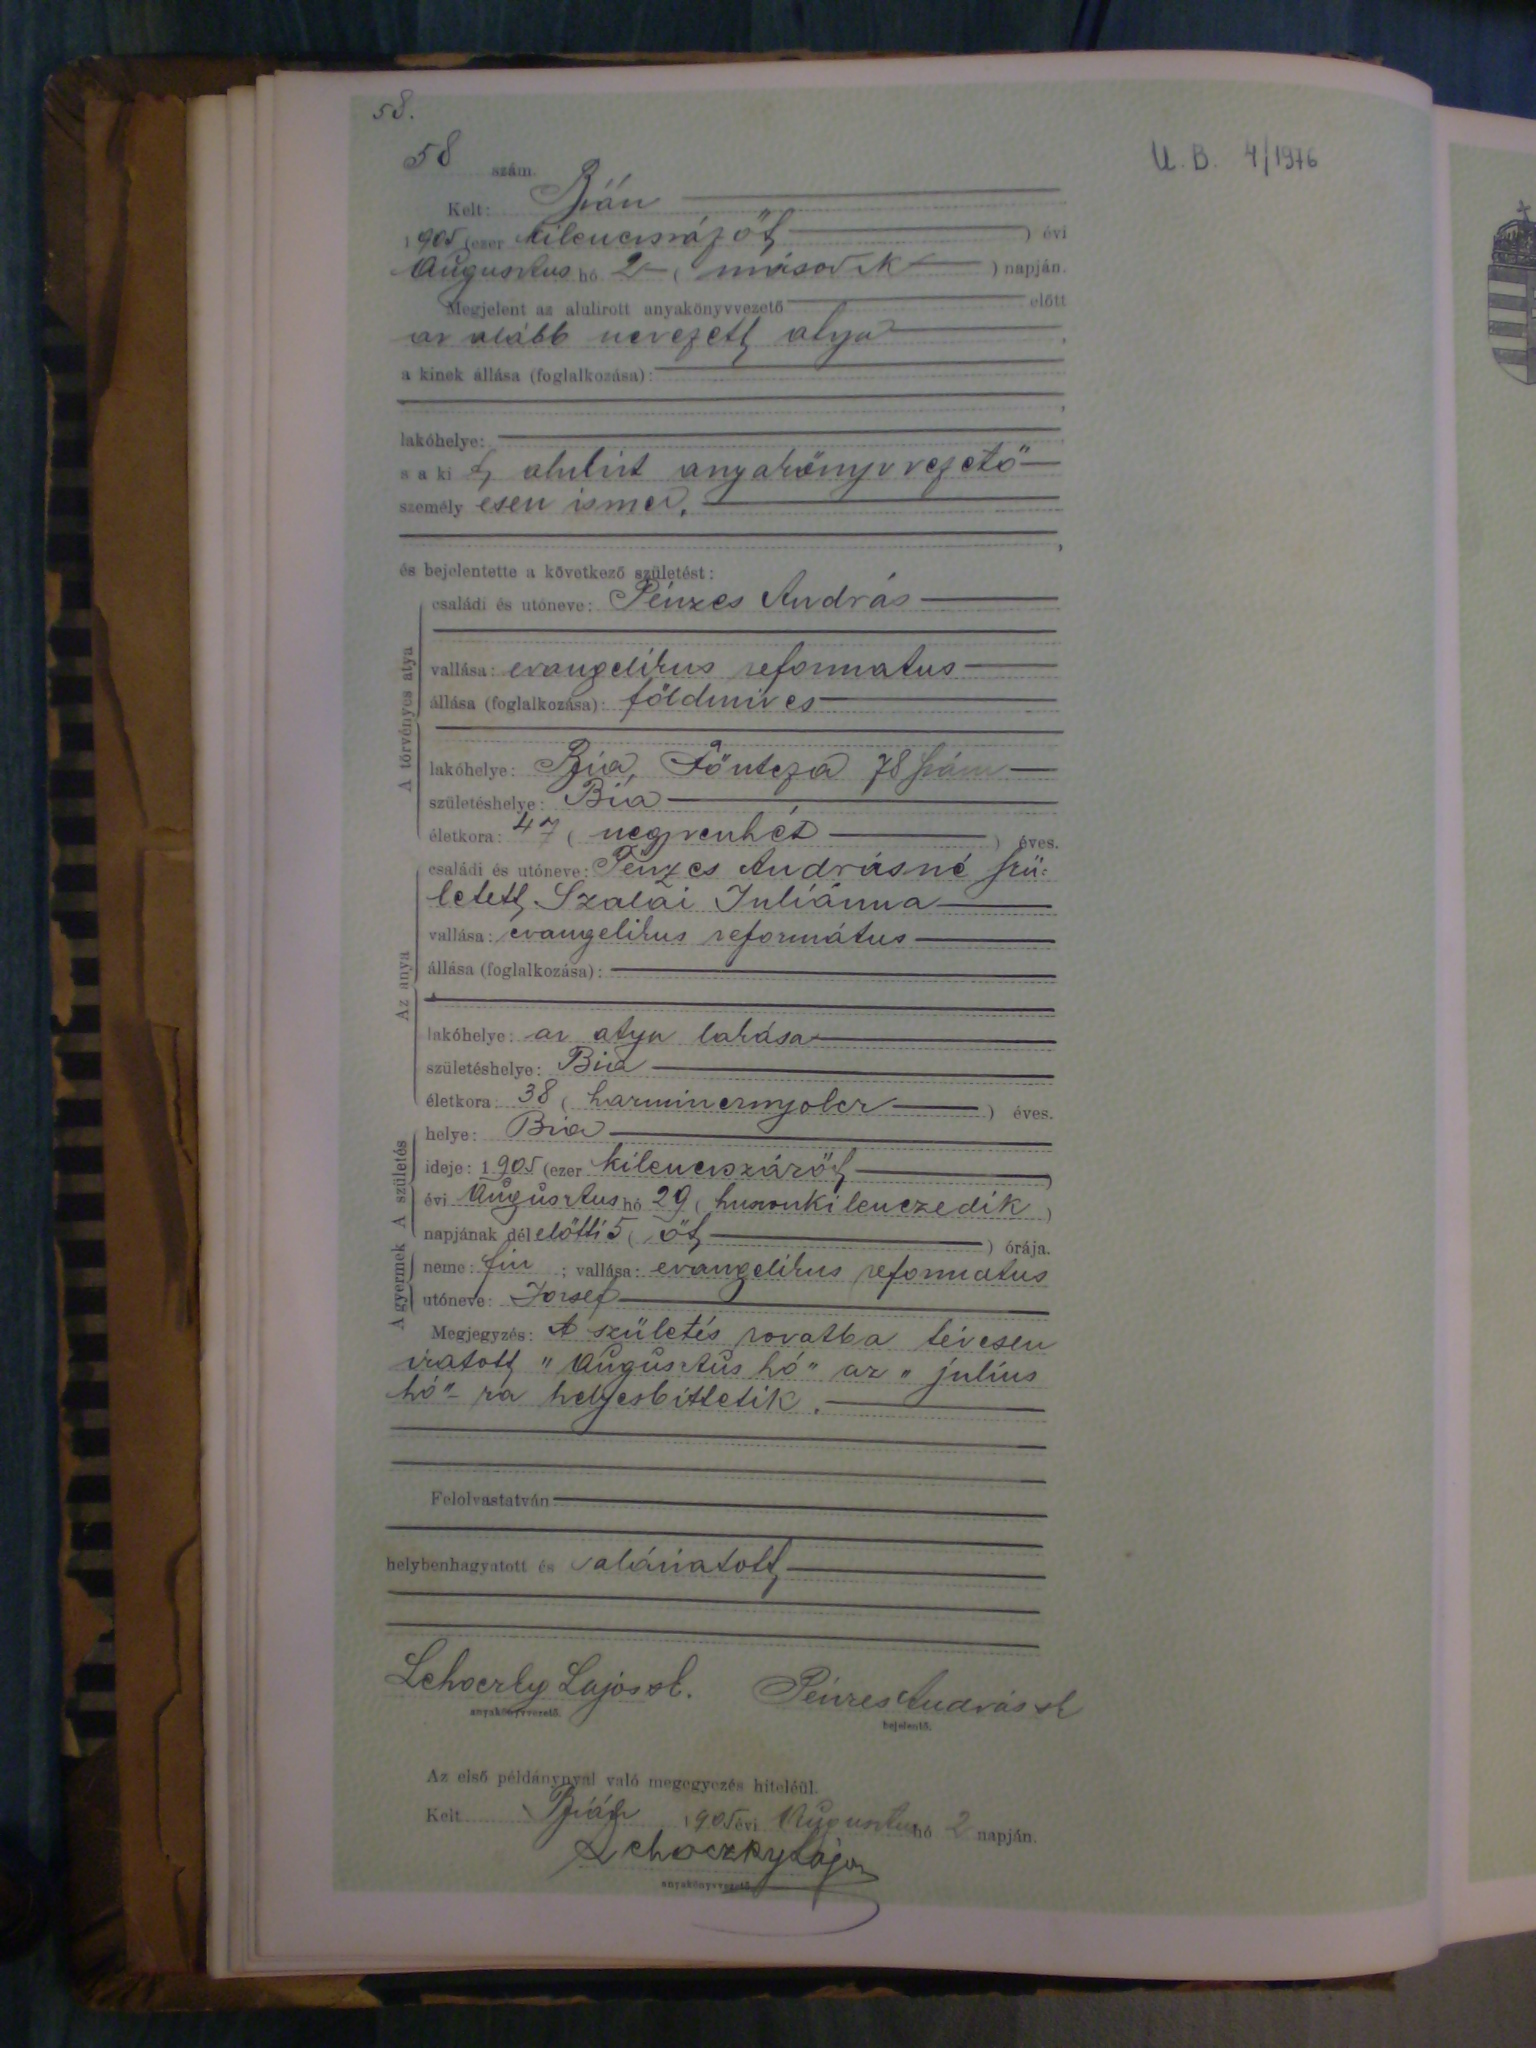 58.
58 szám.
U. B. 4/1976
Kelt: Bián
1905 (ezer kilenczszáz öt ) évi
Augusztus hó 2 ( második ) napján.
Megjelent az alulirott anyakönyvvezető előtt
az alább nevezett atya ,
a kinek állása (foglalkozása):
,
lakóhelye:
s a ki t, alulirt anyakönyvvezető
személy esen ismer.
,
és bejelentette a következő születést:
A törvényes atya
családi és utóneve: Pénzes András
vallása: evangelikus reformatus
állása (foglalkozása): földmives
lakóhelye: Bia, Főutcza 78 szám
születéshelye: Bia
életkora: 47 ( negyvenhét ) éves.
Az anya
családi és utóneve: Pénzes Andrásné szü-
letett Szalai Juliánna
vallása: evangelikus református
állása (foglalkozása):
lakóhelye: az atya lakása
születéshelye: Bia
életkora: 38 ( harmincznyolcz ) éves.
A születés
helye: Bia
ideje: 1905 (ezer kilenczszázöt )
évi Augusztus hó 29 ( huszonkilenczedik )
napjának dél előtti 5 ( öt ) órája.
A gyermek
neme: fiu ; vallása: evangelikus reformatus
utóneve: József
Megjegyzés: A születés rovatba tévesen
iratott „Augusztus hó" az „julius
hó"-ra helyesbittetik.
Felolvastatván
helybenhagyatott és aláiratott
Lehoczky Lajos sk. Pénzes András sk
anyakönyvvezető. bejelentő.
Az első példánynyal való megegyezés hiteléül.
Kelt Bián 1905 évi Augusztus hó 2 napján.
Lehoczky Lajos
anyakönyvvezető.